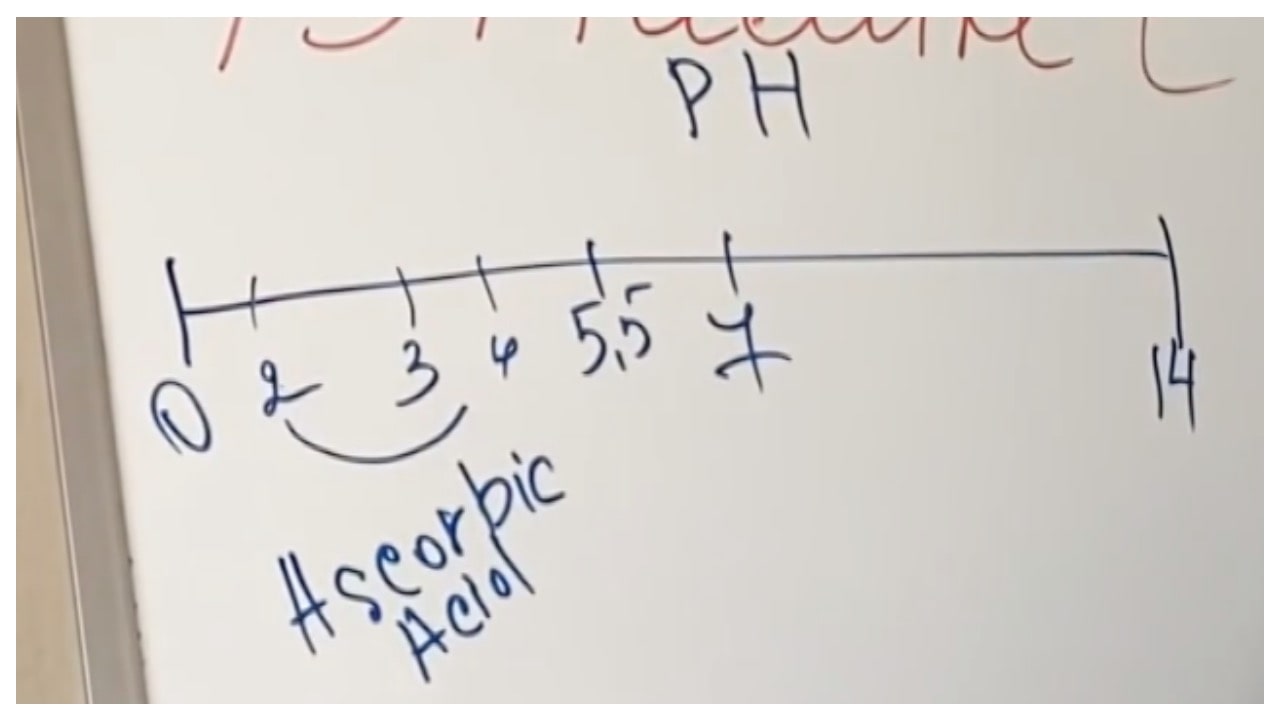 PH
0 2 3 4 5,5 7 14
Ascorbic
Acid